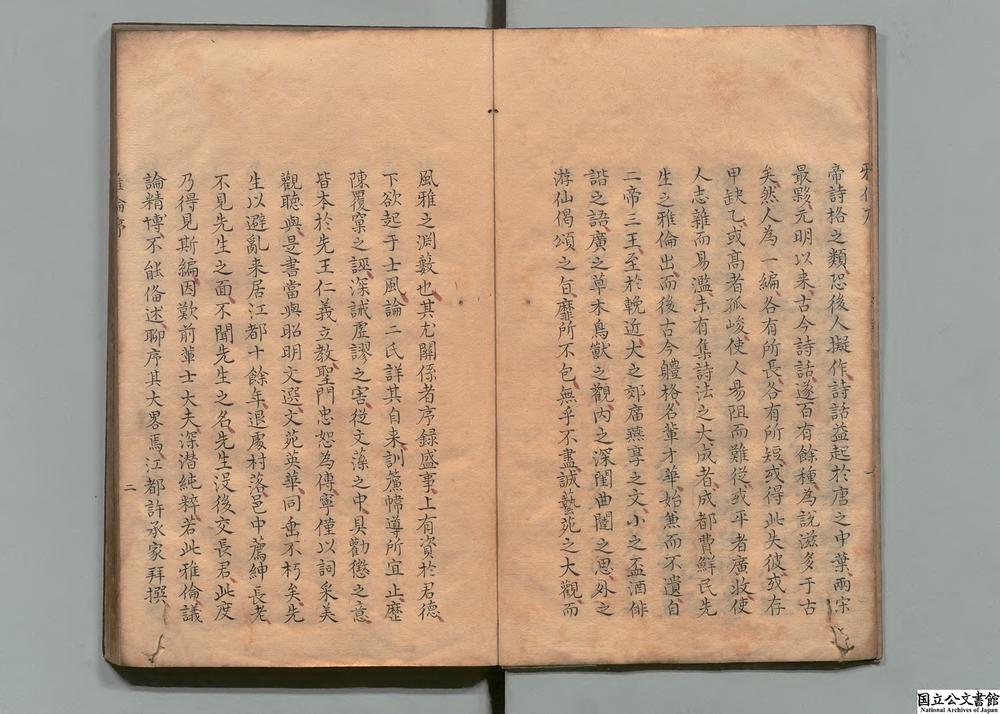 帝詩格之類恐後人擬作詩話益起於唐之中葉兩宋
最夥元明以来古今詩話遂百有餘種為說滋多于古
矣然人為一編各有所長各有所短或得此失彼或存
甲缺乙或髙者孤峻使人易阻而難從或平者廣收使
人志雜而易濫未有集詩法之大成者成都費鮮民先
生之雅倫出而後古今軆格名軰才華始兼而不遺自
二帝三王至於輓近大之郊廟燕享之文小之盃酒俳
諧之語廣之草木鳥獸之觀內之深閨曲閣之思外之
游仙偈頌之㫖靡所不包無乎不盡誠藝苑之大觀而
風雅之淵藪也其尤關係者序録盛事上有資於君德
下欲起于士風論二氏詳其自来訓簾幃導所宜止歷
陳覆窠之誣深誡虛謬之害從文藻之中具勸懲之意
皆本於先王仁義立教聖門忠恕為傳寧僅以詞采美
觀聽與是書當與昭明文選文苑英華同垂不朽矣先
生以避亂来居江都十餘年退處村落邑中薦紳長老
不見先生之面不聞先生之名先生没後交長君此度
乃得見斯編因歎前軰士大夫深潜純粹若此雅倫議
論精博不能俻述聊序其大畧焉江都許承家拜撰
二
国立公文書館
National Archives of Japan